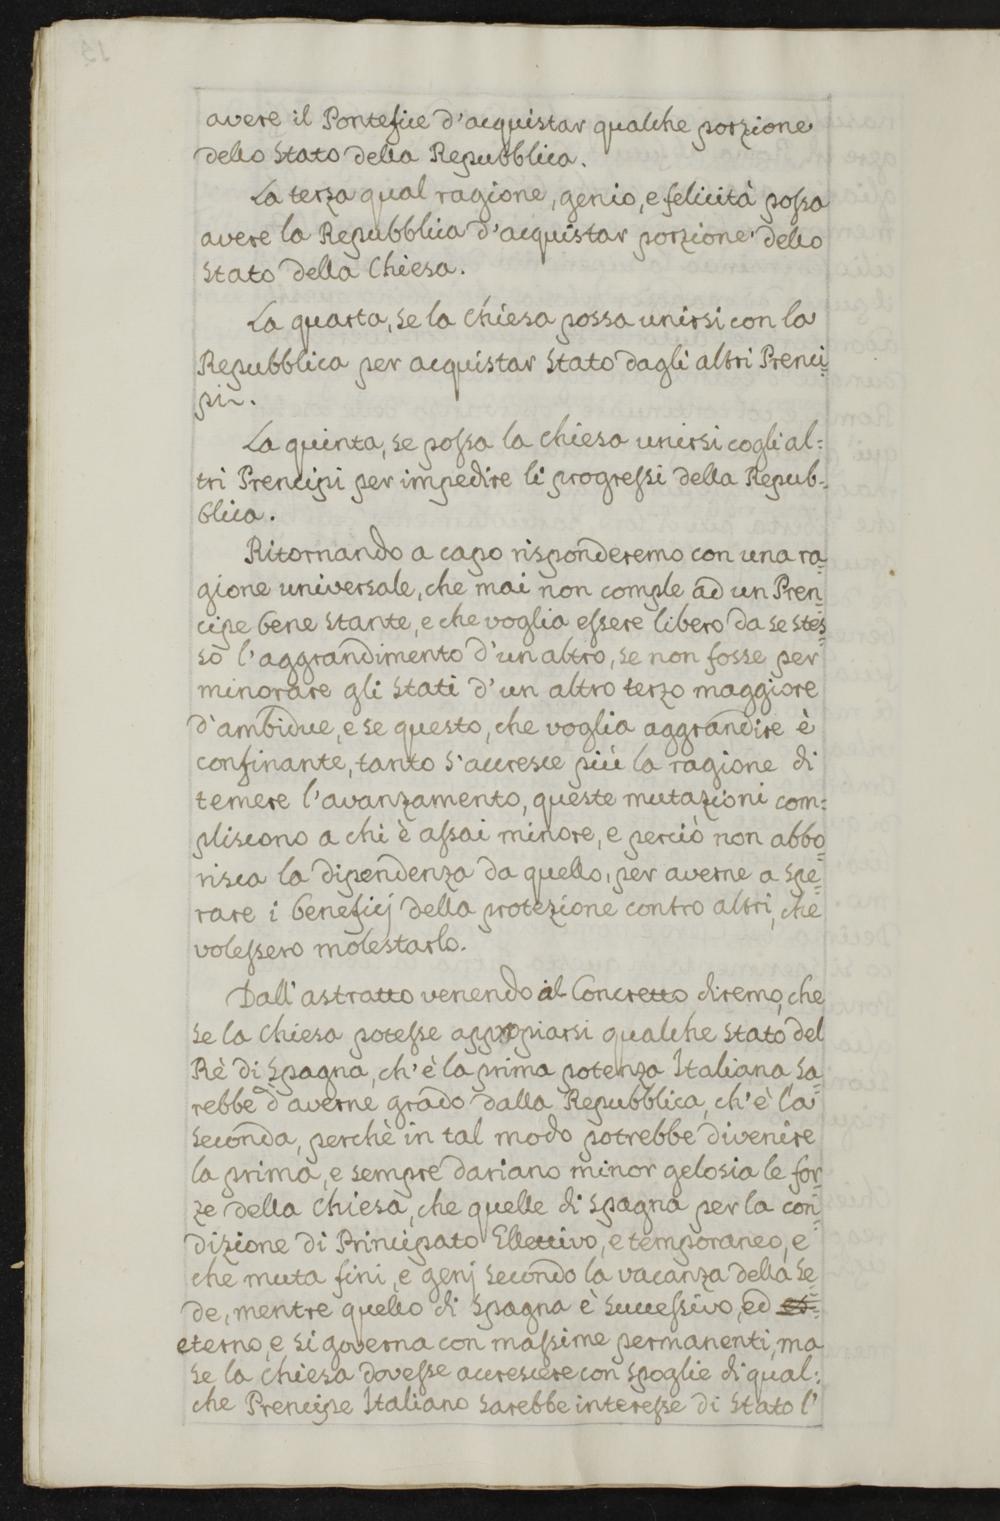 avere il Pontefice d'acquistar qualche porzione
dello Stato della Repubblica.
La terza qual ragione, genio, e felicità possa
avere la Repubblica d'acquistar porzione dello
Stato della Chiesa.
La quarta, se la Chiesa possa unirsi con la
Repubblica per acquistar Stato dagli altri Prenci=
pi.
La quinta, se possa la Chiesa unirsi cogli al=
tri Prencipi per impedire li progressi della Repub=
blica.
Ritornando a capo risponderemo con una ra=
gione universale, che mai non comple ad un Pren=
cipe bene stante, e che voglia essere libero da se stes=
so l'aggrandimento d'un altro, se non fosse per
minorare gli Stati d'un altro terzo maggiore
d'ambidue, e se questo, che voglia aggrandire è
confinante, tanto s'accresce più la ragione di
temere l'avanzamento, queste mutazioni com=
pliscono a chi è assai minore, e perciò non abbo=
risca la dipendenza da quello, per averne a spe=
rare i beneficj della protezione contro altri, che
volessero molestarlo.
Dall'astratto venendo al Concretto diremo, che
se la Chiesa potesse appropiarsi qualche Stato del
Rè di Spagna, ch'è la prima potenza Italiana sa=
rebbe d'averne grado dalla Repubblica, ch'è la
seconda, perchè in tal modo potrebbe divenire
la prima, e sempre dariano minor gelosia le for=
ze della Chiesa, che quelle di Spagna per la con=
dizione di Principato Ellettivo, e temporaneo, e
che muta fini, e genj secondo la vacanza della Se=
de, mentre quello di Spagna è successivo, ed
eterno, e si governa con massime permanenti, ma
se la Chiesa dovesse accrescere con spoglie di qual=
che Prencipe Italiano sarebbe interesse di Stato l'